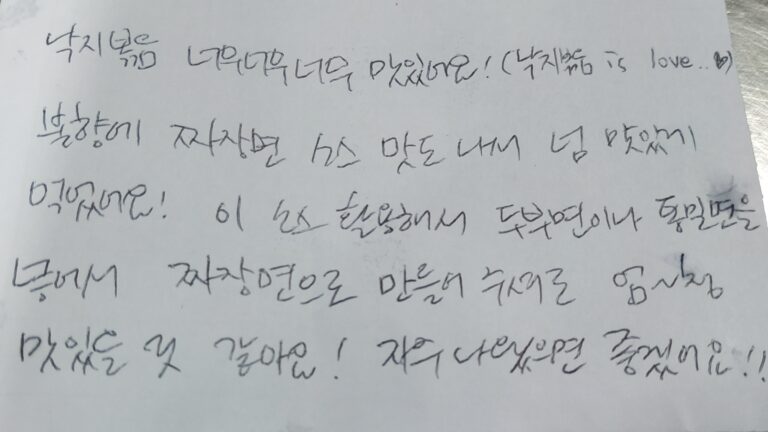 낙지볶음 너무너무너무 맛있어요! (낙지볶음 is love..♡)
불향에 짜장면 소스 맛도 나서 넘 맛있게
먹었어요! 이 소스 활용해서 두부면이나 통밀면을
넣어서 짜장면으로 만들어 주셔도 엄청
맛있을 것 같아요! 자주 나왔으면 좋겠어요!!